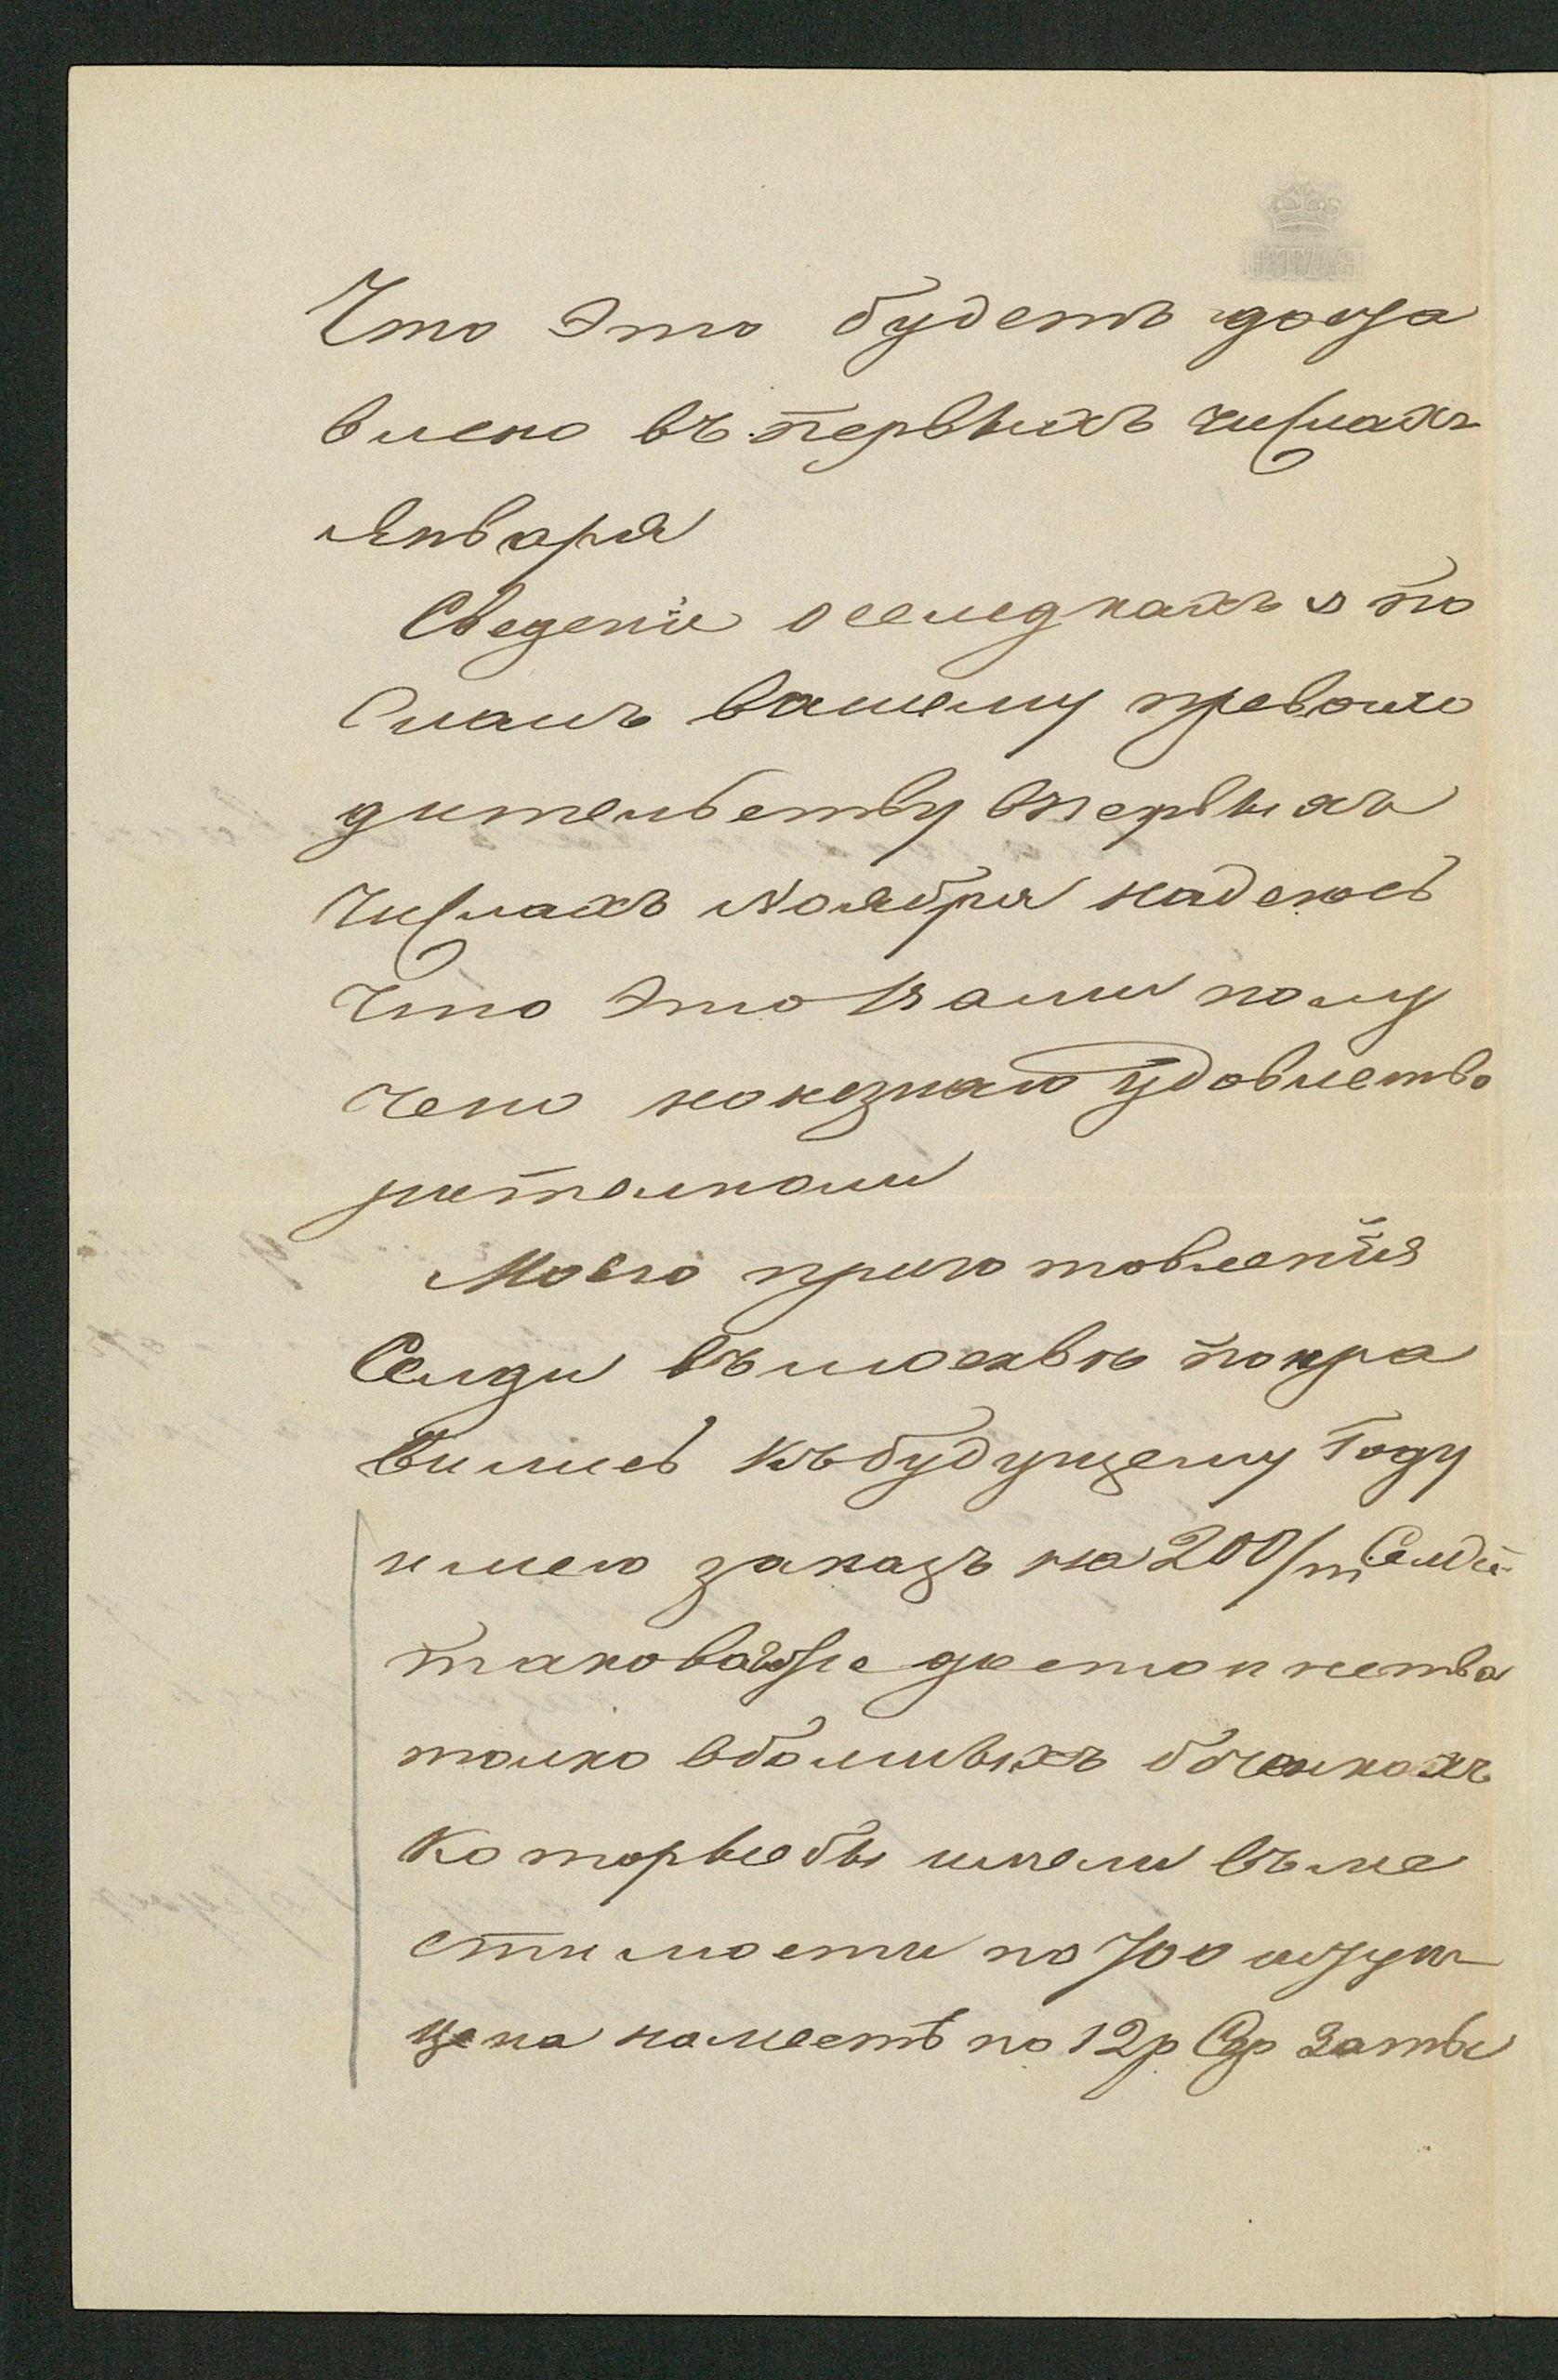 Что Это будетъ доста
влено въ первыхъ числахъ
Января
Сведение о селедкахъ я по
Слалъ вашему превосхо
дительству впервыхъ
числахъ Ноября надеюсь
Что Это Вами полу
чено но незнаю удовлетво
рителноли
Моего приготовления
Селди въ москвѣ понра
вились къ будущему Году
имею заказъ на 200/т Селди
таковаго же достоинства
толко вболшихъ боченкахъ
Которые бы имели въме
стимости по 700 штукъ
цена наместь по 12р Сер За ты